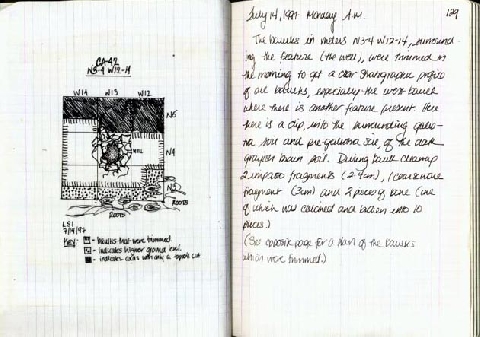 N3-4 W12-14
W14 W13 W12
N5
N4
N3
ROOTS
ROOTS
LS1
7/14/97
Key: - baulks that were trimmed
- indicates higher ground level
- indicates
July 14, 1997 Monday A.M. 129
The baulks in meters N3-4 W12-14, surround-
ing the feature (the well), were trimmed in
the morning to get a clear stratigraphic profile
of all baulks, especially the west baulk
where there is another feature present. Here
there is a dip into the surrounding
soil and of the dark
grayish brown soil. During baulk cleanup
2 fragments (2.7cm), 1
fragment (3cm) and 2 pieces bone (one
of which was and broken into 10
pieces.)
(See opposite page for a plan of the baulks
which were trimmed.)